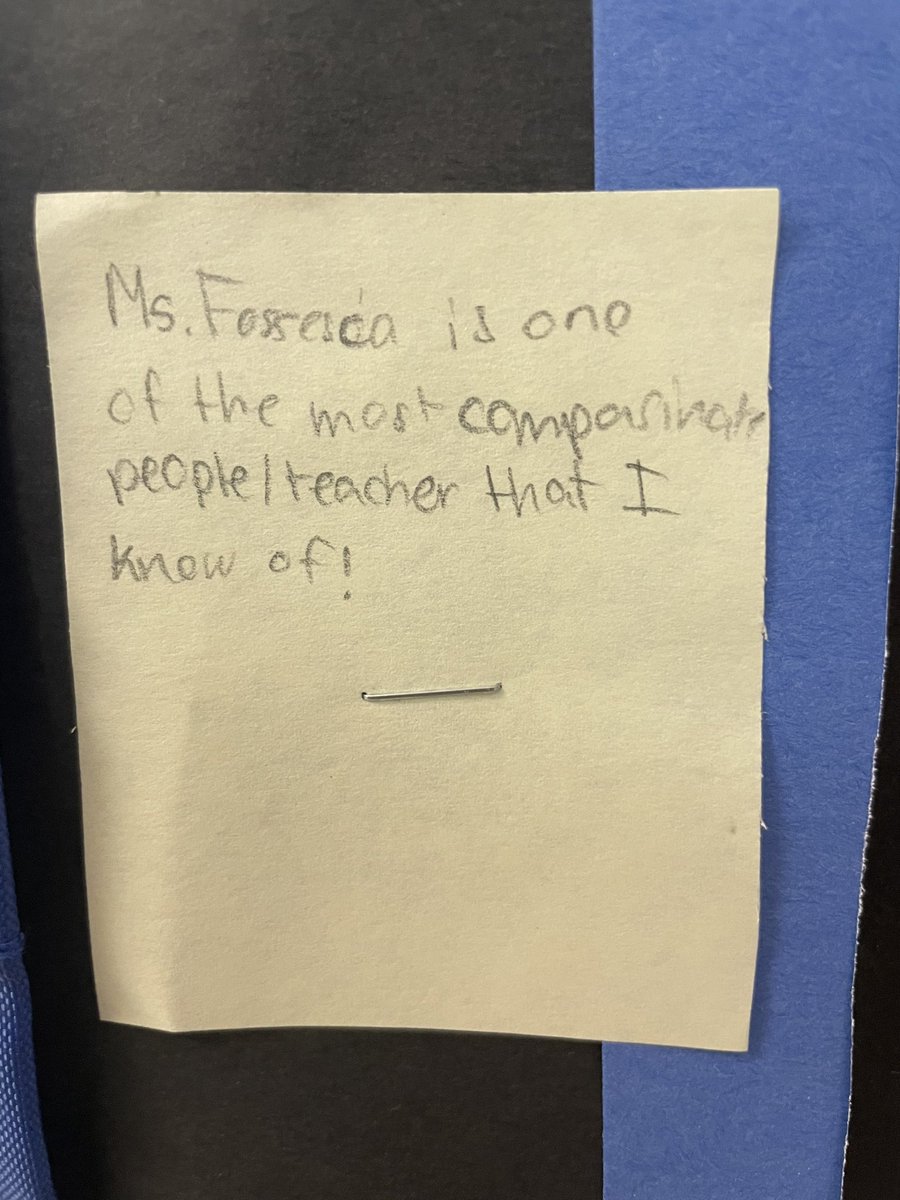 Ms. is one
of the most compasinate
people/teacher that I
know of!